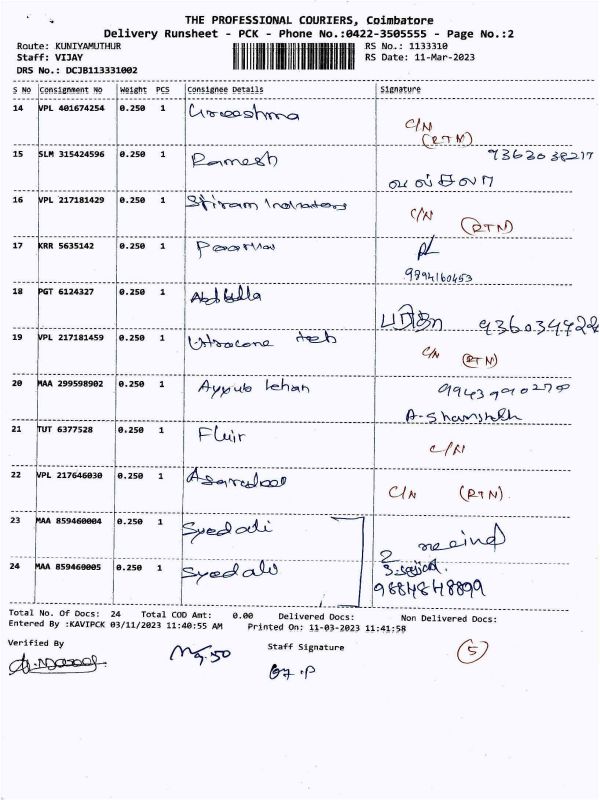 THE PROFESSIONAL COURIERS, Coimbatore
Delivery Runsheet - PCK - Phone No.:0422-3505555 - Page No.:2
Route: KUNIYAMUTHUR
RS No.: 1133310
Staff: VIJAY
RS Date: 11-Mar-2023
DRS No.: DCJB113331002
S No Consignment No Weight PCS Consignee Details Signature
14 VPL 401674254 0.250 1 Greeshma C/N (RTN)
15 SLM 315424596 0.250 1 Ramesh 9363038217
16 VPL 217181429 0.250 1 Sriram C/N (RTN)
17 KRR 5635142 0.250 1
9894160453
18 PGT 6124327 0.250 1 Abdulla
19 VPL 217181459 0.250 1 C/N (RTN)
20 MAA 299598902 0.250 1 Ayyub
21 TUT 6377528 0.250 1 C/N
22 VPL 217646030 0.250 1 C/N (RTN)
23 MAA 859460004 0.250 1 Syed ali 2
24 MAA 859460005 0.250 1 Syed ali
9884848899
Total No. Of Docs: 24 Total COD Amt: 0.00 Delivered Docs: Non Delivered Docs:
Entered By :KAVIPCK 03/11/2023 11:40:55 AM Printed On: 11-03-2023 11:41:58
Verified By
Staff Signature
5